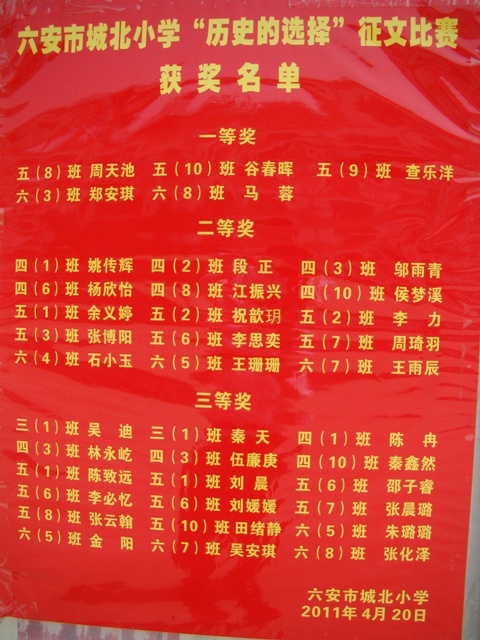 六安市城北小学“历史的选择”征文比赛
获奖名单
一等奖
五(8)班 周天池 五(10)班 谷春晖 五(9)班 查乐洋
六(3)班 郑安琪 六(8)班 马蓉
二等奖
四(1)班 姚传辉 四(2)班 段正 四(3)班 邬雨青
四(6)班 杨欣怡 四(8)班 江振兴 四(10)班 侯梦溪
五(1)班 余义婷 五(2)班 祝歆玥 五(2)班 李力
五(3)班 张博阳 五(6)班 李思奕 五(7)班 周琦羽
六(4)班 石小玉 六(5)班 王珊珊 六(7)班 王雨辰
三等奖
三(1)班 吴迪 三(1)班 秦天 四(1)班 陈冉
四(3)班 林永屹 四(3)班 伍廉庚 四(10)班 秦鑫然
五(1)班 陈致远 五(1)班 刘晨 五(6)班 邵子睿
五(6)班 李必忆 五(6)班 刘媛媛 五(7)班 张晨璐
五(8)班 张云翰 五(10)班 田绪静 六(5)班 朱璐璐
六(5)班 金阳 六(7)班 吴安琪 六(8)班 张化泽
六安市城北小学
2011年4月20日